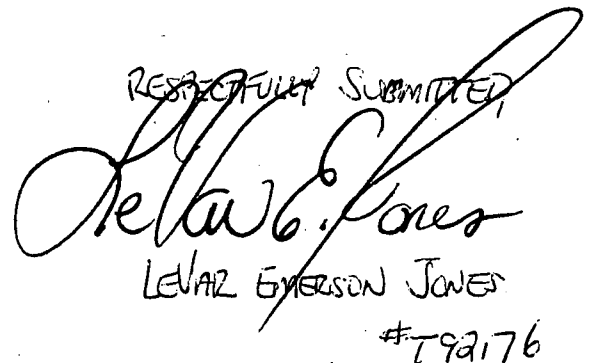 RESPECTFULLY SUBMITTED,
LeVar E. Jones
LEVAR EMERSON JONES
#T92176